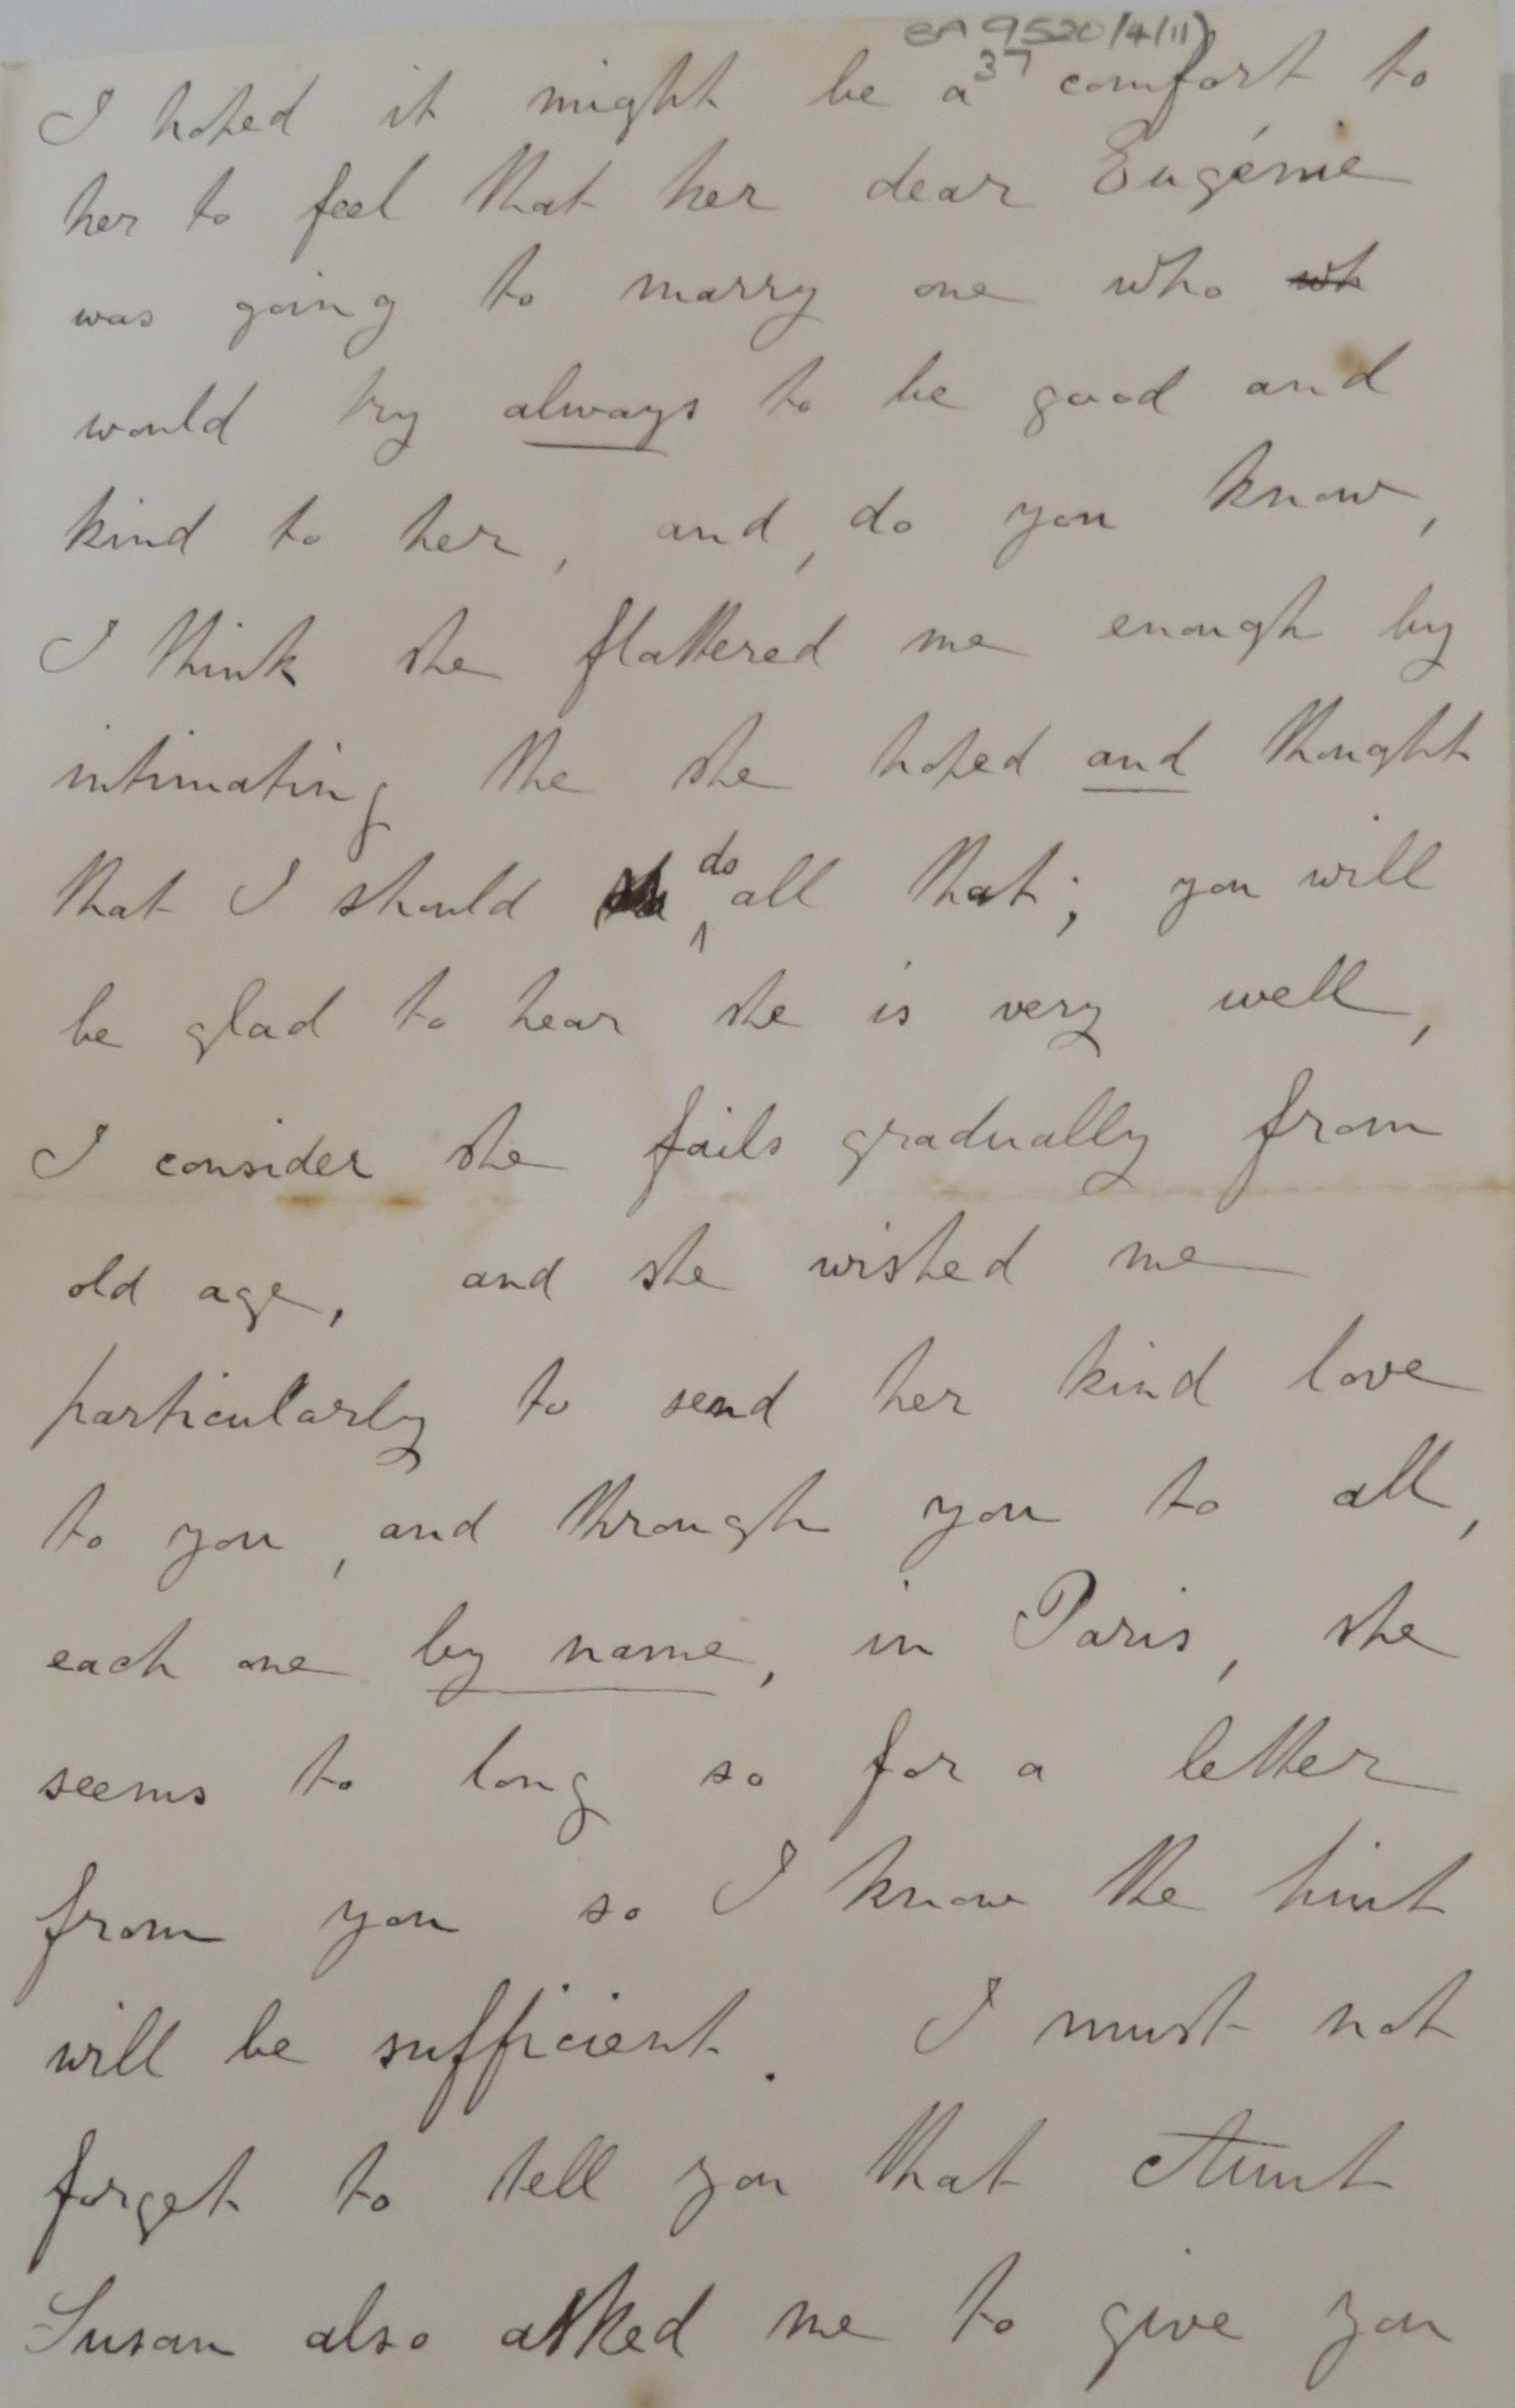 BA 9520/4/11)
37
I hoped it might be a comfort to
her to feel that her dear Eugénie
was going to marry one who wh
would try always to be good and
kind to her, and, do you know,
I think she flattered me enough by
intimating the she hoped and thought
that I should do all that; you will
be glad to hear she is very well,
I consider she fails gradually from
old age, and she wished me
particularly to send her kind love
to you, and through you to all,
each one by name, in Paris, she
seems to long so for a letter
from you so I know the hint
will be sufficient. I must not
forget to tell you that Aunt
Susan also asked me to give you